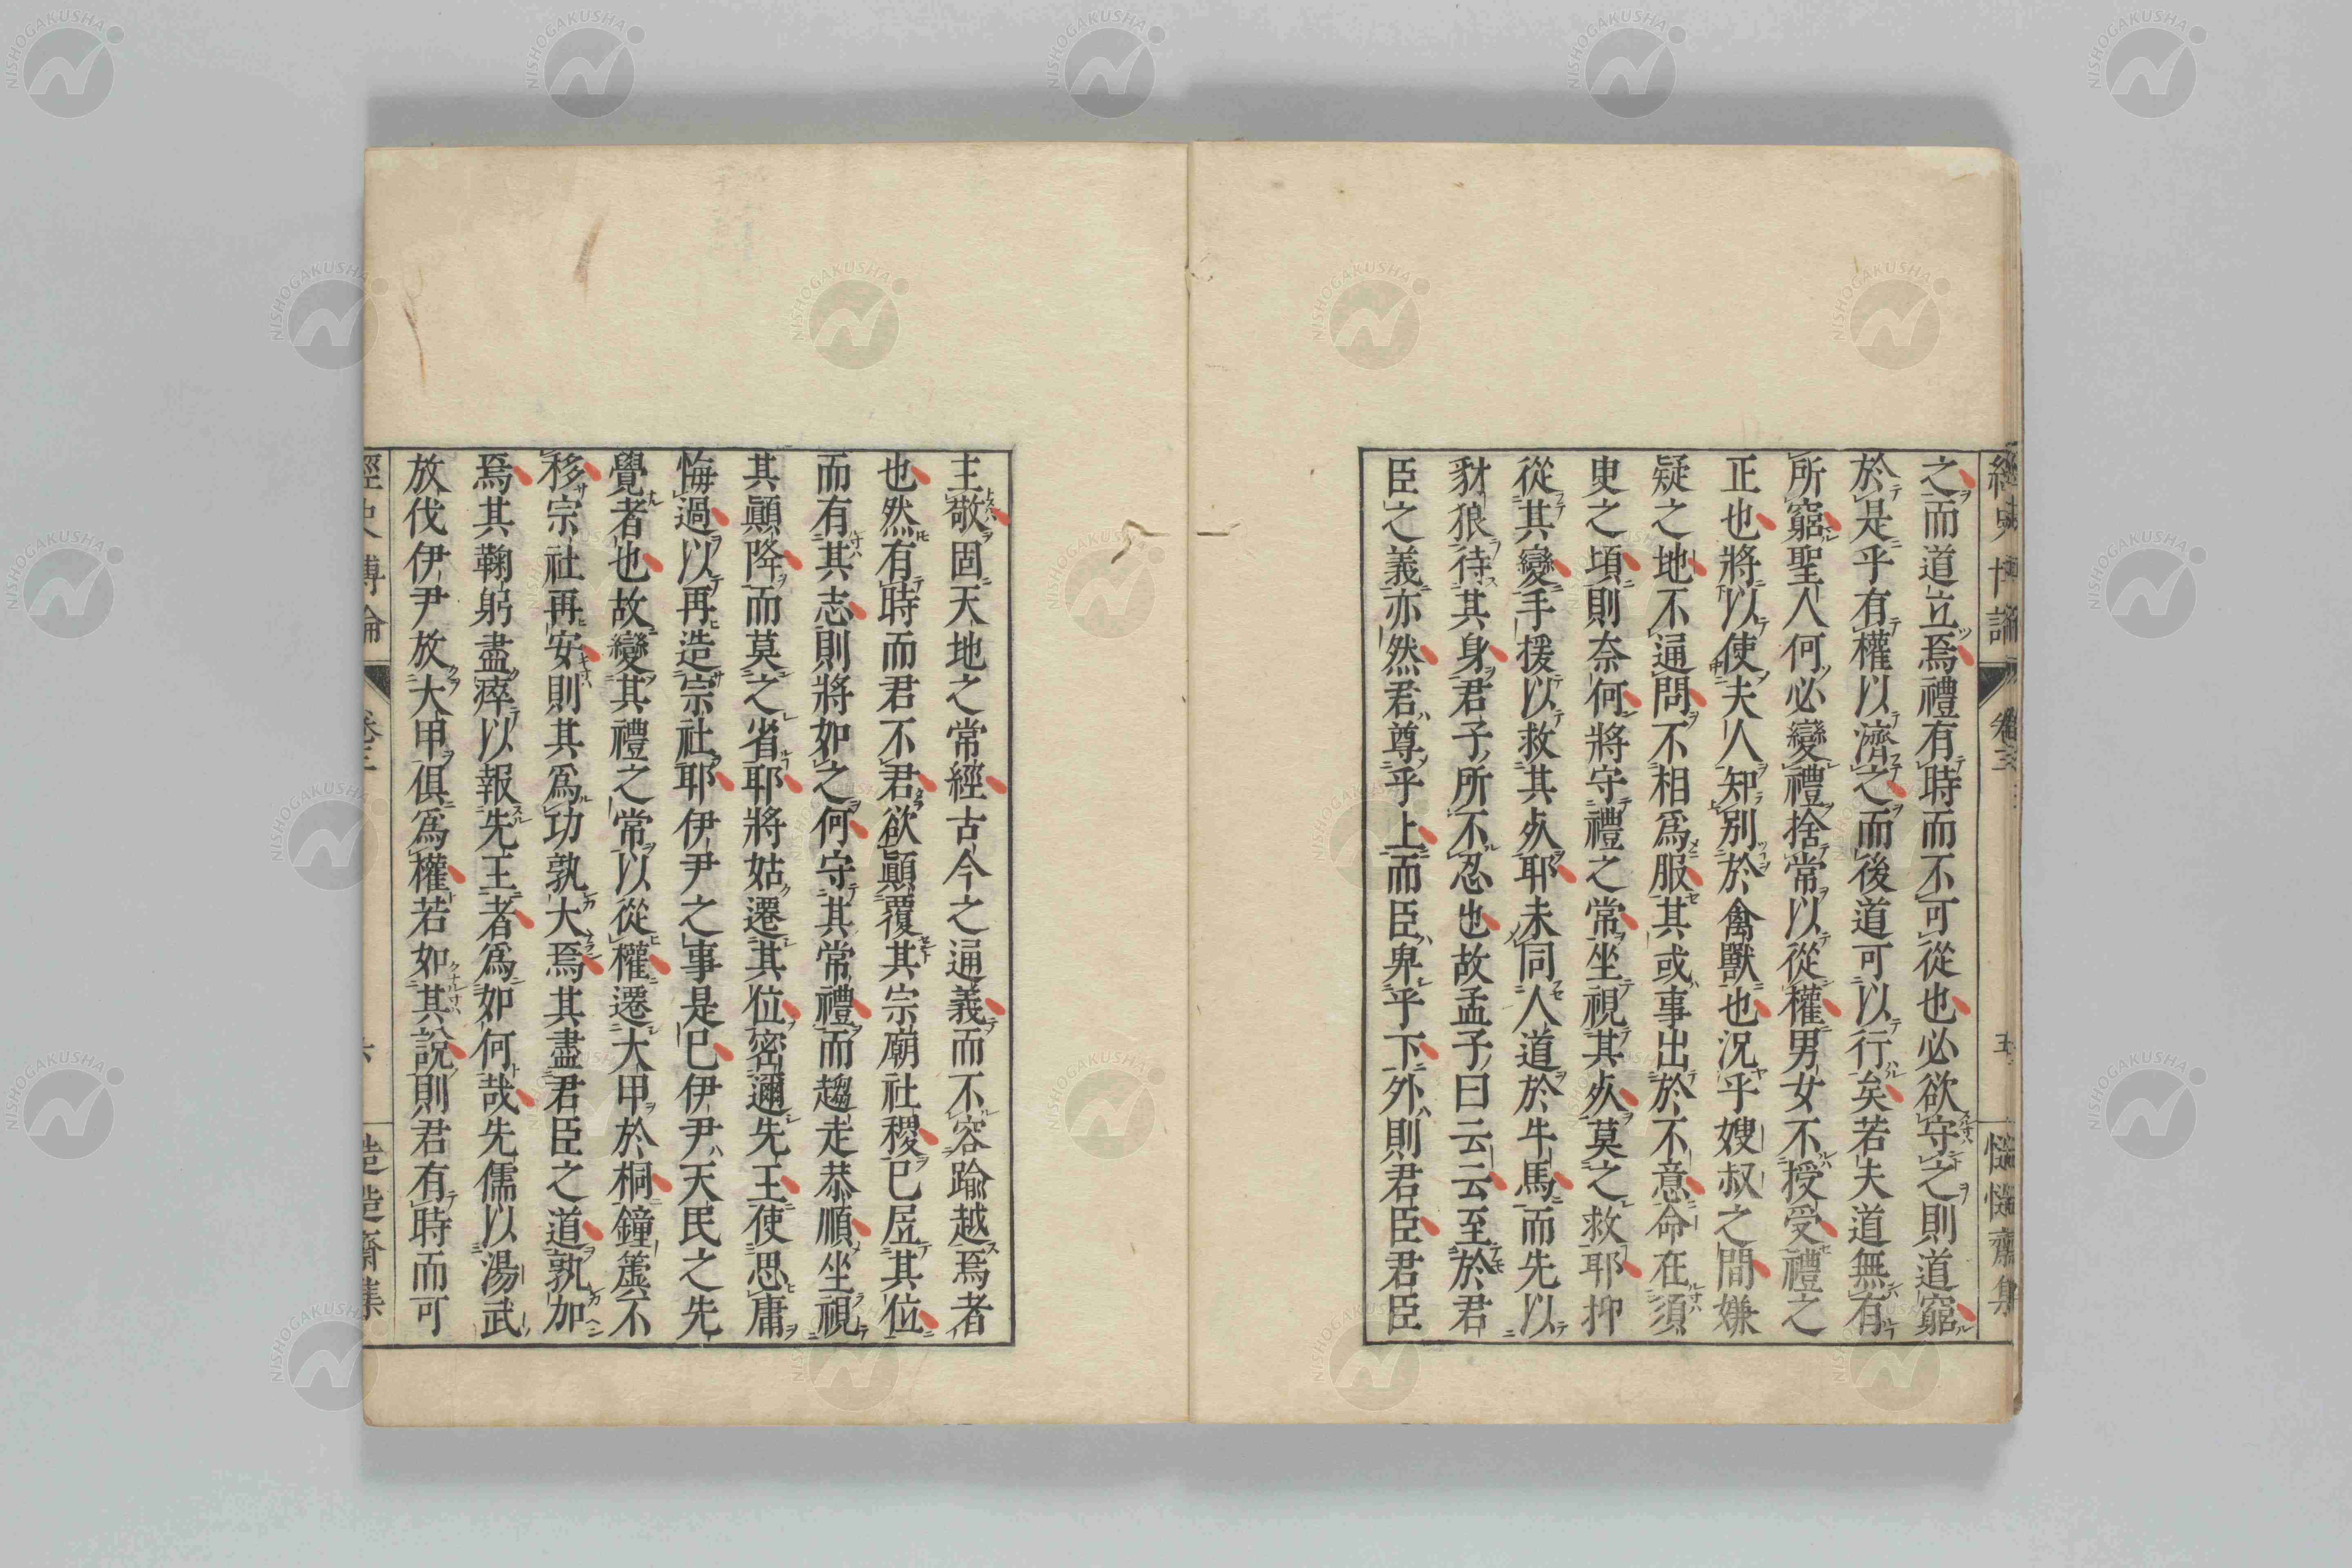 之而道立焉禮有時而不可從也必欲守之則道窮
於是乎有權以濟之而後道可以行矣若夫道無有
所窮聖人何必變禮捨常以從權男女不授受禮之
正也將以使夫人知別於禽獸也況乎嫂叔之間嫌
疑之地不通問不相爲服其或事出於不意命在須
臾之頃則奈何將守禮之常坐視其死莫之救耶抑
從其變手援以救其死耶未同人道於牛馬而先以
豺狼待其身君子所不忍也故孟子曰云云至於君
臣之義亦然君尊乎上而臣卑乎下外則君臣君臣
主敬固天地之常經古今之通義而不容踰越焉者
也然有時而君不君欲顚覆其宗廟社稷已居其位
而有其志則將如之何守其常禮而趨走恭順坐視
其顚降而莫之省耶將姑遷其位密邇先王使思庸
悔過以再造宗社耶伊尹之事是已伊尹天民之先
覺者也故變其禮之常以從權遷大甲於桐鐘簴不
移宗社再安則其爲功孰大焉其盡君臣之道孰加
焉其鞠躬盡瘁以報先王者爲如何哉先儒以湯武
放伐伊尹放大甲俱爲權若如其說則君有時而可
經史博論
卷三
六
NISHOGAKUSHA